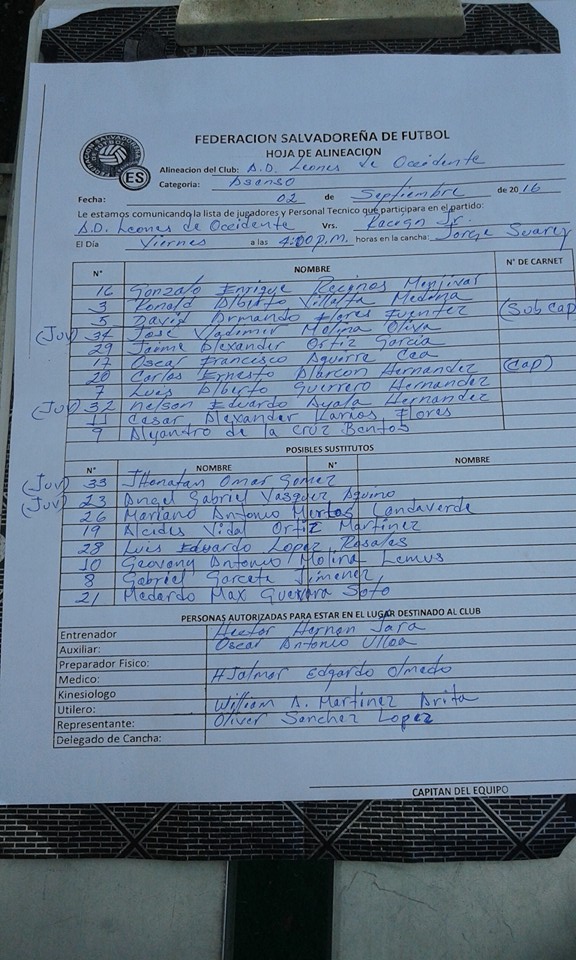 FEDERACION SALVADOREÑA DE FUTBOL
HOJA DE ALINEACION
ES
Alineacion del Club: A.D. Leones de Occidente
Categoria: Asenso
Fecha: 02 de Septiembre de 2016
Le estamos comunicando la lista de jugadores y Personal Tecnico que participara en el partido:
A.D. Leones de Occidente Vrs. Jr.
El Día Viernes a las 4:00 P.M. horas en la cancha: Jorge Suarez
N° NOMBRE N° DE CARNET
16 Gonzalo Enrique Recinos Menjivar
3 Ronald Alberto Villalta Medina
5 David Armando Flores Fuentes (Sub Cap)
(Juv) 34 José Vladimir Molina Oliva
29 Jaime Alexander Ortiz Garcia
17 Oscar Francisco Aguirre Cea
20 Carlos Ernesto Alarcon Hernandez (Cap)
7 Luis Alberto Guerrero Hernandez
(Juv) 32 Nelson Eduardo Ayala Hernandez
11 Cesar Alexander Larios Flores
9 Alejandro de la Cruz Bentos
POSIBLES SUSTITUTOS
N° NOMBRE N° NOMBRE
(Juv) 33 Jhonatan Omar Gomez
(Juv) 23 Angel Gabriel Vasquez Aquino
26 Mariano Antonio Landaverde
19 Alcides Vidal Ortiz Martinez
28 Luis Eduardo Lopez Rosales
10 Geovany Antonio Molina Lemus
8 Gabriel Garcete Jimenez
21 Medardo Max Guevara Soto
PERSONAS AUTORIZADAS PARA ESTAR EN EL LUGAR DESTINADO AL CLUB
Entrenador Hector Hernan Jara
Auxiliar: Oscar Antonio Ulloa
Preparador Fisico:
Medico: HJalmar Edgardo Olmedo
Kinesiologo
Utilero: William A. Martinez Arita
Representante: Oliver Sanchez Lopez
Delegado de Cancha:
CAPITAN DEL EQUIPO